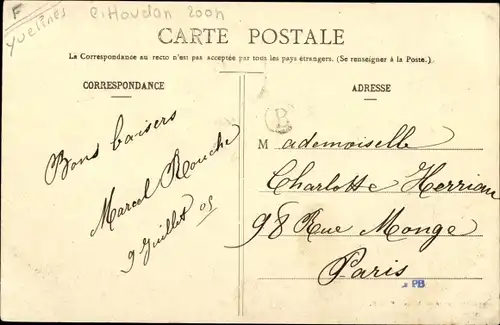 F
Yvelines
C. Houdan 200h
CARTE POSTALE
La Correspondance au recto n'est pas acceptée par tous les pays étrangers. (Se renseigner à la Poste.)
CORRESPONDANCE
Bons baisers
Marcel Rouche
9 Juillet 05
ADRESSE
B
Mademoiselle
Charlotte Herriau
98 Rue Monge
Paris
PB